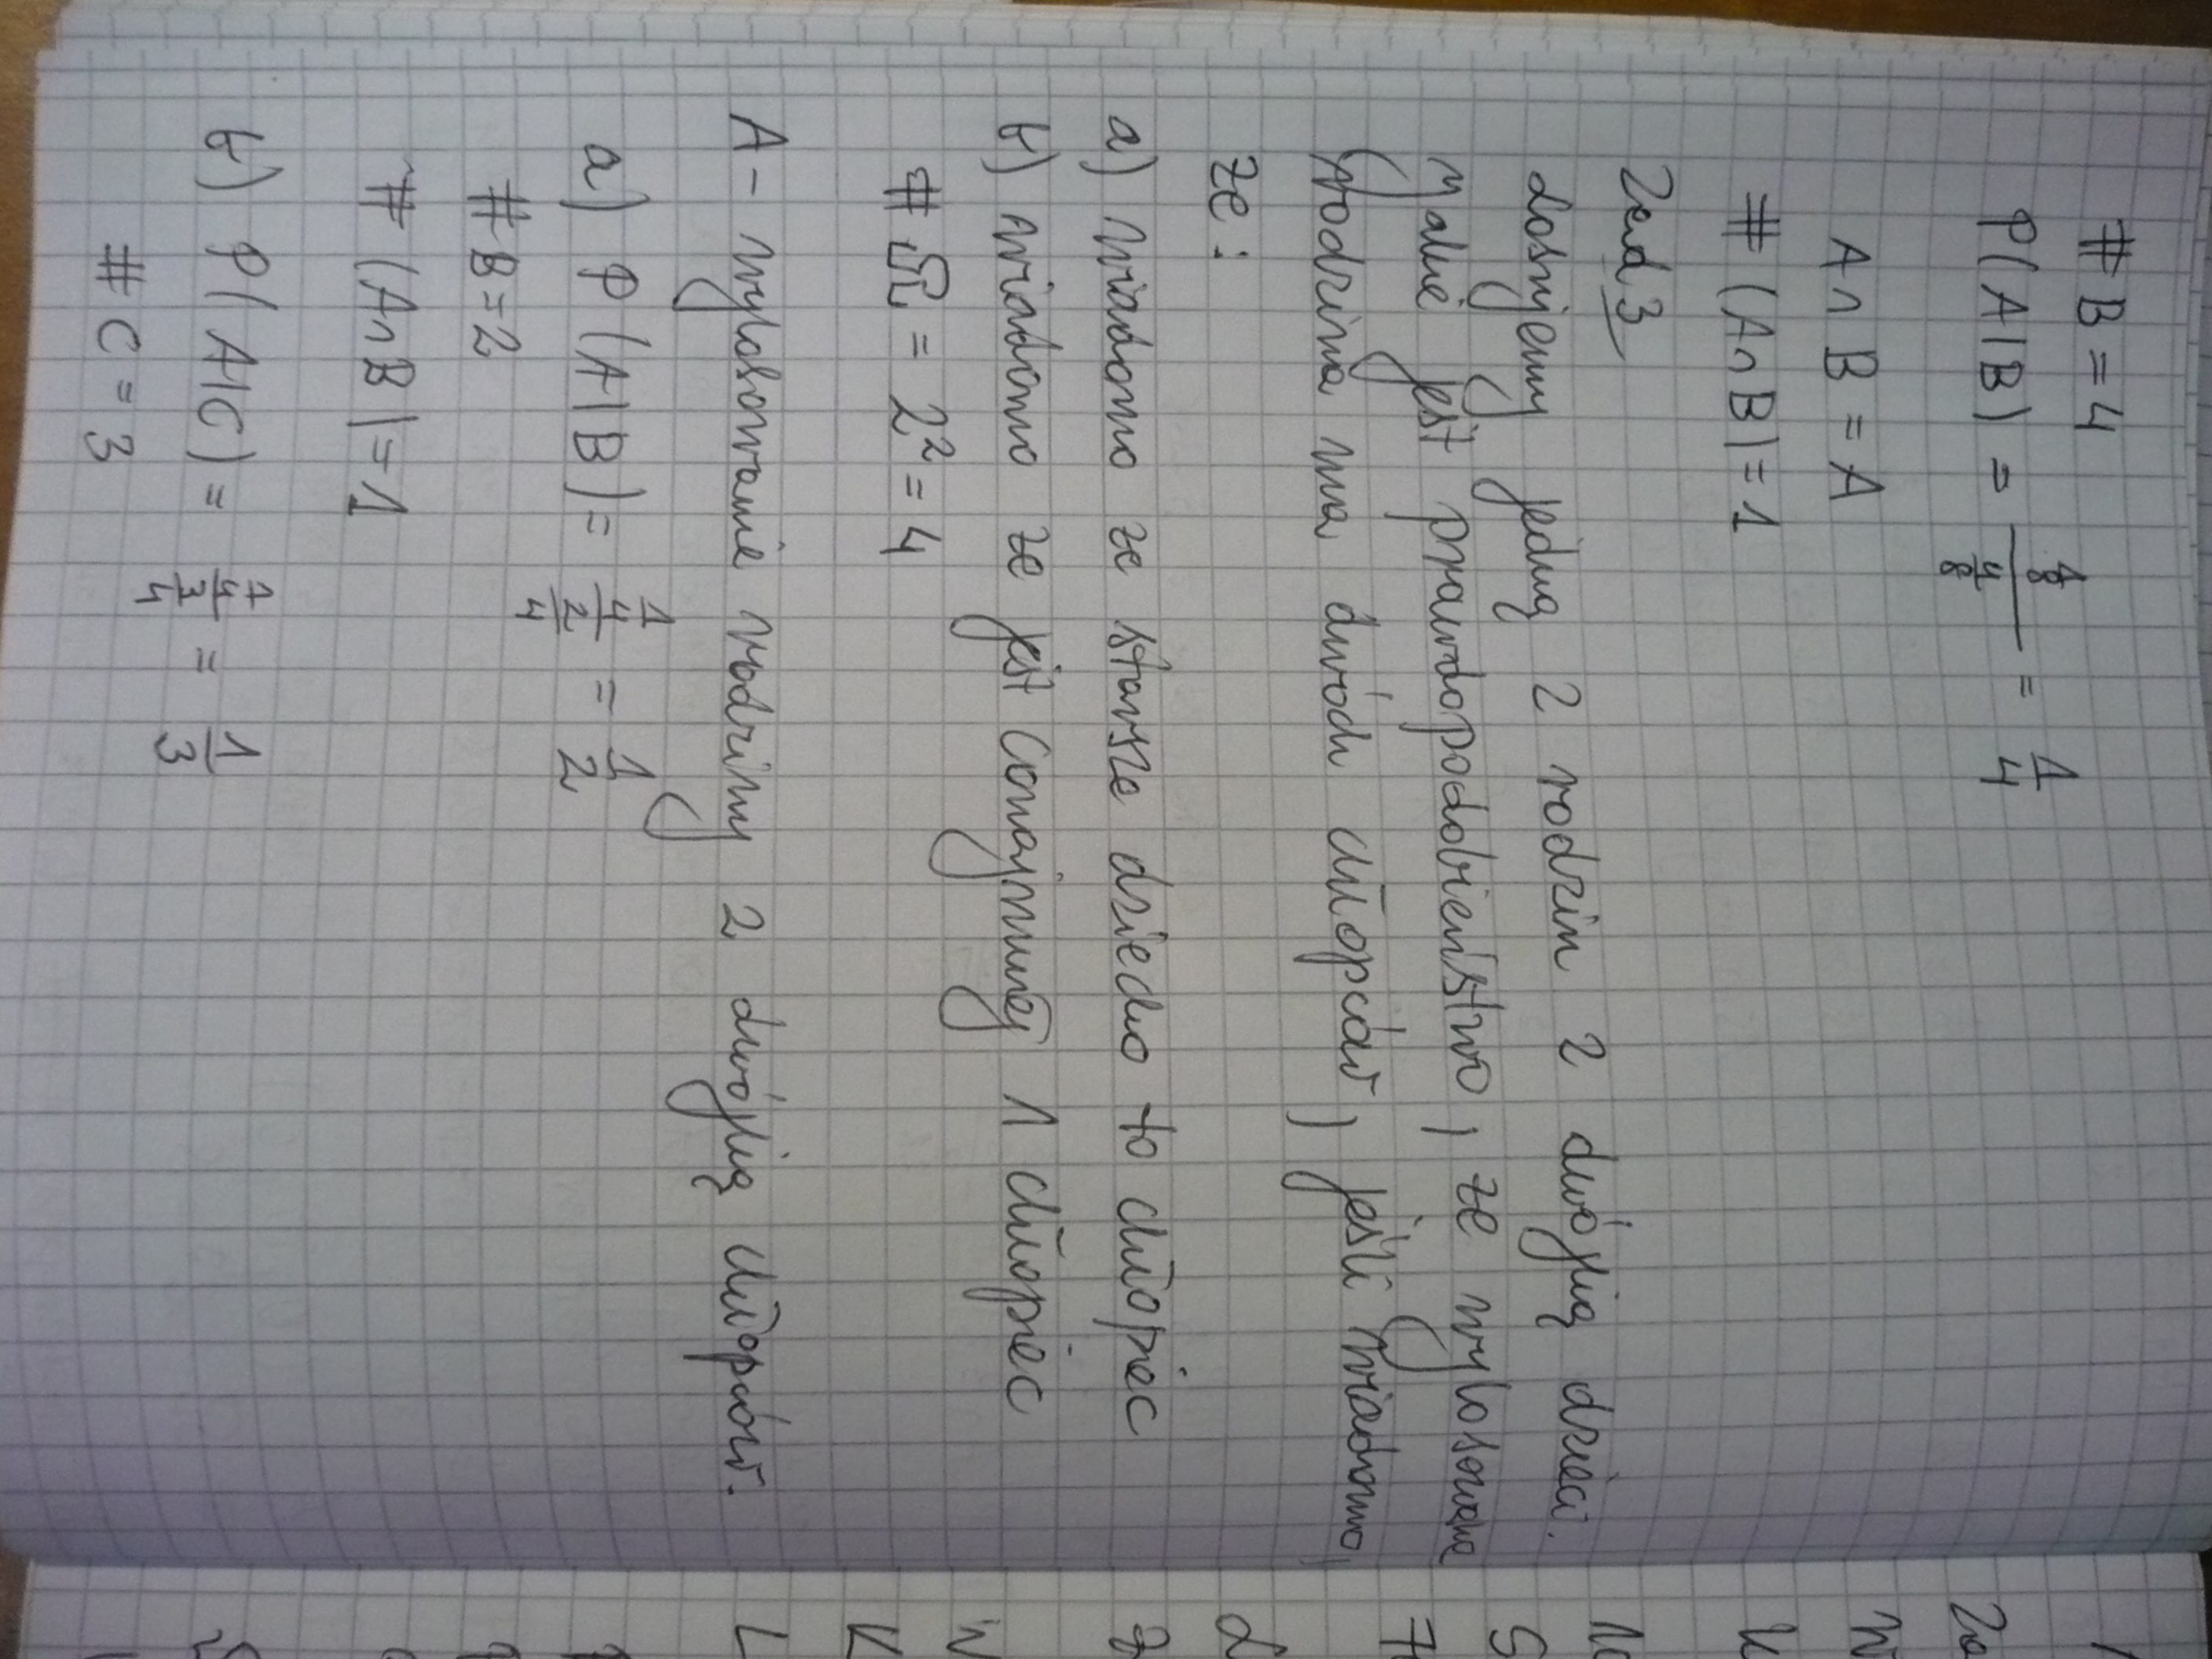 # B = 4
P(A|B) = \frac{\frac{1}{8}}{\frac{4}{8}} = \frac{1}{4}
A ∩ B = A
# (A ∩ B) = 1
Zad 3
Losujemy jedną z rodzin z dwójką dzieci.
Jakie jest prawdopodobieństwo, że wylosowana
rodzina ma dwóch chłopców, jeśli wiadomo,
że:
a) wiadomo że starsze dziecko to chłopiec
b) wiadomo że jest conajmniej 1 chłopiec
# Ω = 2² = 4
A - wylosowanie rodziny z dwójką chłopców.
a) P(A|B) = \frac{\frac{1}{4}}{\frac{2}{4}} = \frac{1}{2}
# B = 2
# (A ∩ B) = 1
b) P(A|C) = \frac{\frac{1}{4}}{\frac{3}{4}} = \frac{1}{3}
# C = 3